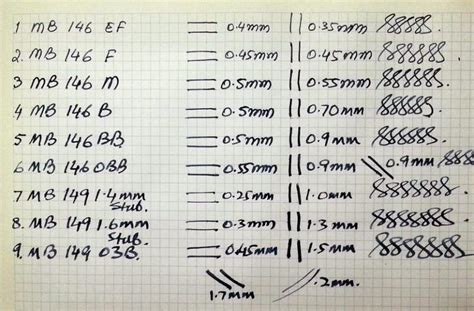 1 MB 146 EF 0.4mm 0.35mm
2. MB 146 F 0.45mm 0.45mm
3 MB 146 M 0.5mm 0.55mm
4 MB 146 B 0.5mm 0.70mm
5 MB 146 BB 0.5mm 0.9mm
6 MB 146 OBB 0.55mm 0.9mm 0.9mm
7 MB 149 1.4mm Stub. 0.25mm 1.0mm
8. MB 149 1.6mm Stub. 0.3mm 1.3mm
9. MB 149 O3B. 0.45mm 1.5mm
1.7mm .2mm.